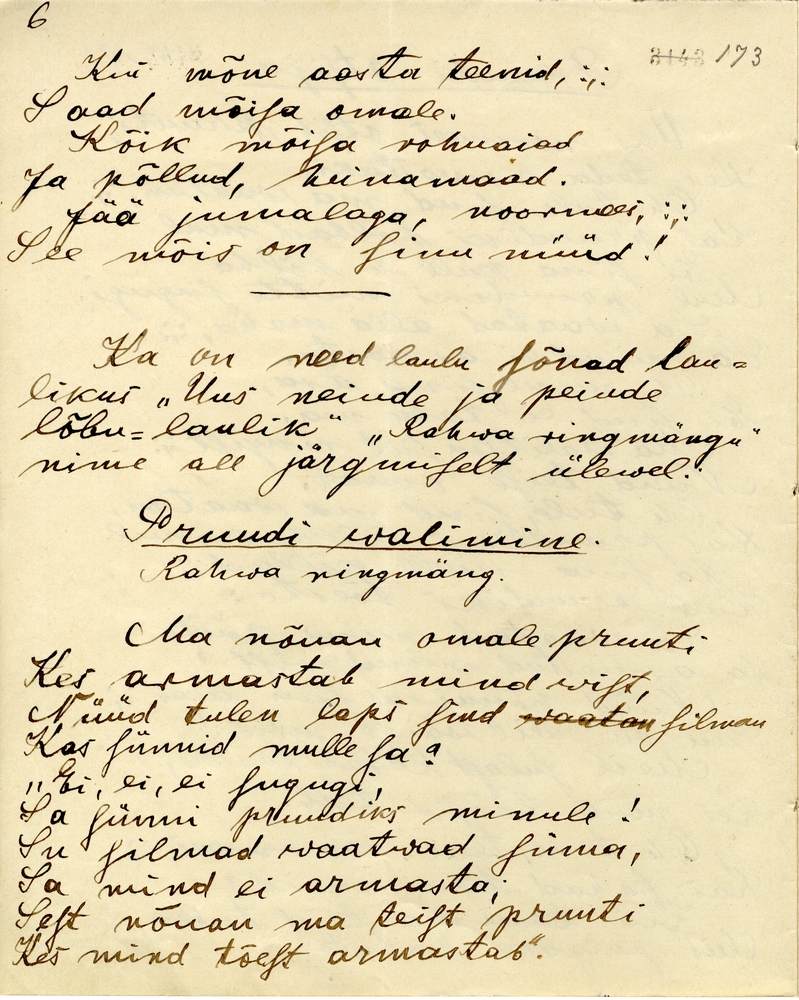 6
3143 173
Kui mõne aasta teenid, :,:
Saad mõisa omale.
Kõik mõisa rohuaiad
Ja põllud, heinamaad.
Jää jumalaga, noormees, :,:
See mõis on sinu nüüd!
Ka on need laulu sõnad lau=
likus „Uus neiude ja peiude
lõbu=laulik“ „Rahwa ringmängu“
nime all järgmiselt ülewel:
Pruudi walimine.
Rahwa ringmäng.
Ma nõuan omale pruuti
Kes armastab mind wist,
Nüüd tulen laps sind waatan silman
Kas sünnid mulle sa?
„Ei, ei, ei sugugi,
Sa sünni pruudiks minule!
Su silmad waatwad sinna,
Sa mind ei armasta;
Sest nõuan ma teist pruuti
Kes mind tõest armastab“.